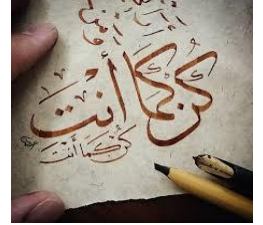 كُن كَمَا أنْتَ
كُن كَمَا أنْتَ